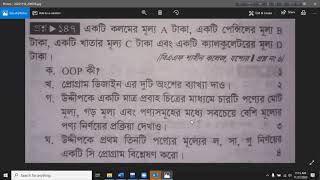 প্রশ্ন ▶ ১৪৭ একটি কলমের মূল্য A টাকা, একটি পেন্সিলের মূল্য B
টাকা, একটি খাতার মূল্য C টাকা এবং একটি ক্যালকুলেটরের মূল্য D
টাকা। [বিএএফ শাহীন কলেজ, যশোর। প্রশ্ন নং ৬]
ক. OOP কী? ১
খ. প্রোগ্রাম ডিজাইন এর দুটি অংশের ব্যাখ্যা দাও। ২
গ. উদ্দীপকে একটি মাত্র প্রবাহ চিত্রের মাধ্যমে চারটি পণ্যের মোট
মূল্য, গড় মূল্য এবং পণ্যসমূহের মধ্যে সবচেয়ে বেশি মূল্যের
পণ্য নির্ণয়ের প্রক্রিয়া দেখাও। ৩
ঘ. উদ্দীপকে প্রথম তিনটি পণ্যের মূল্যের ল, সা, গু নির্ণয়ের
একটি সি প্রোগ্রাম বিশ্লেষণ করো। ৪